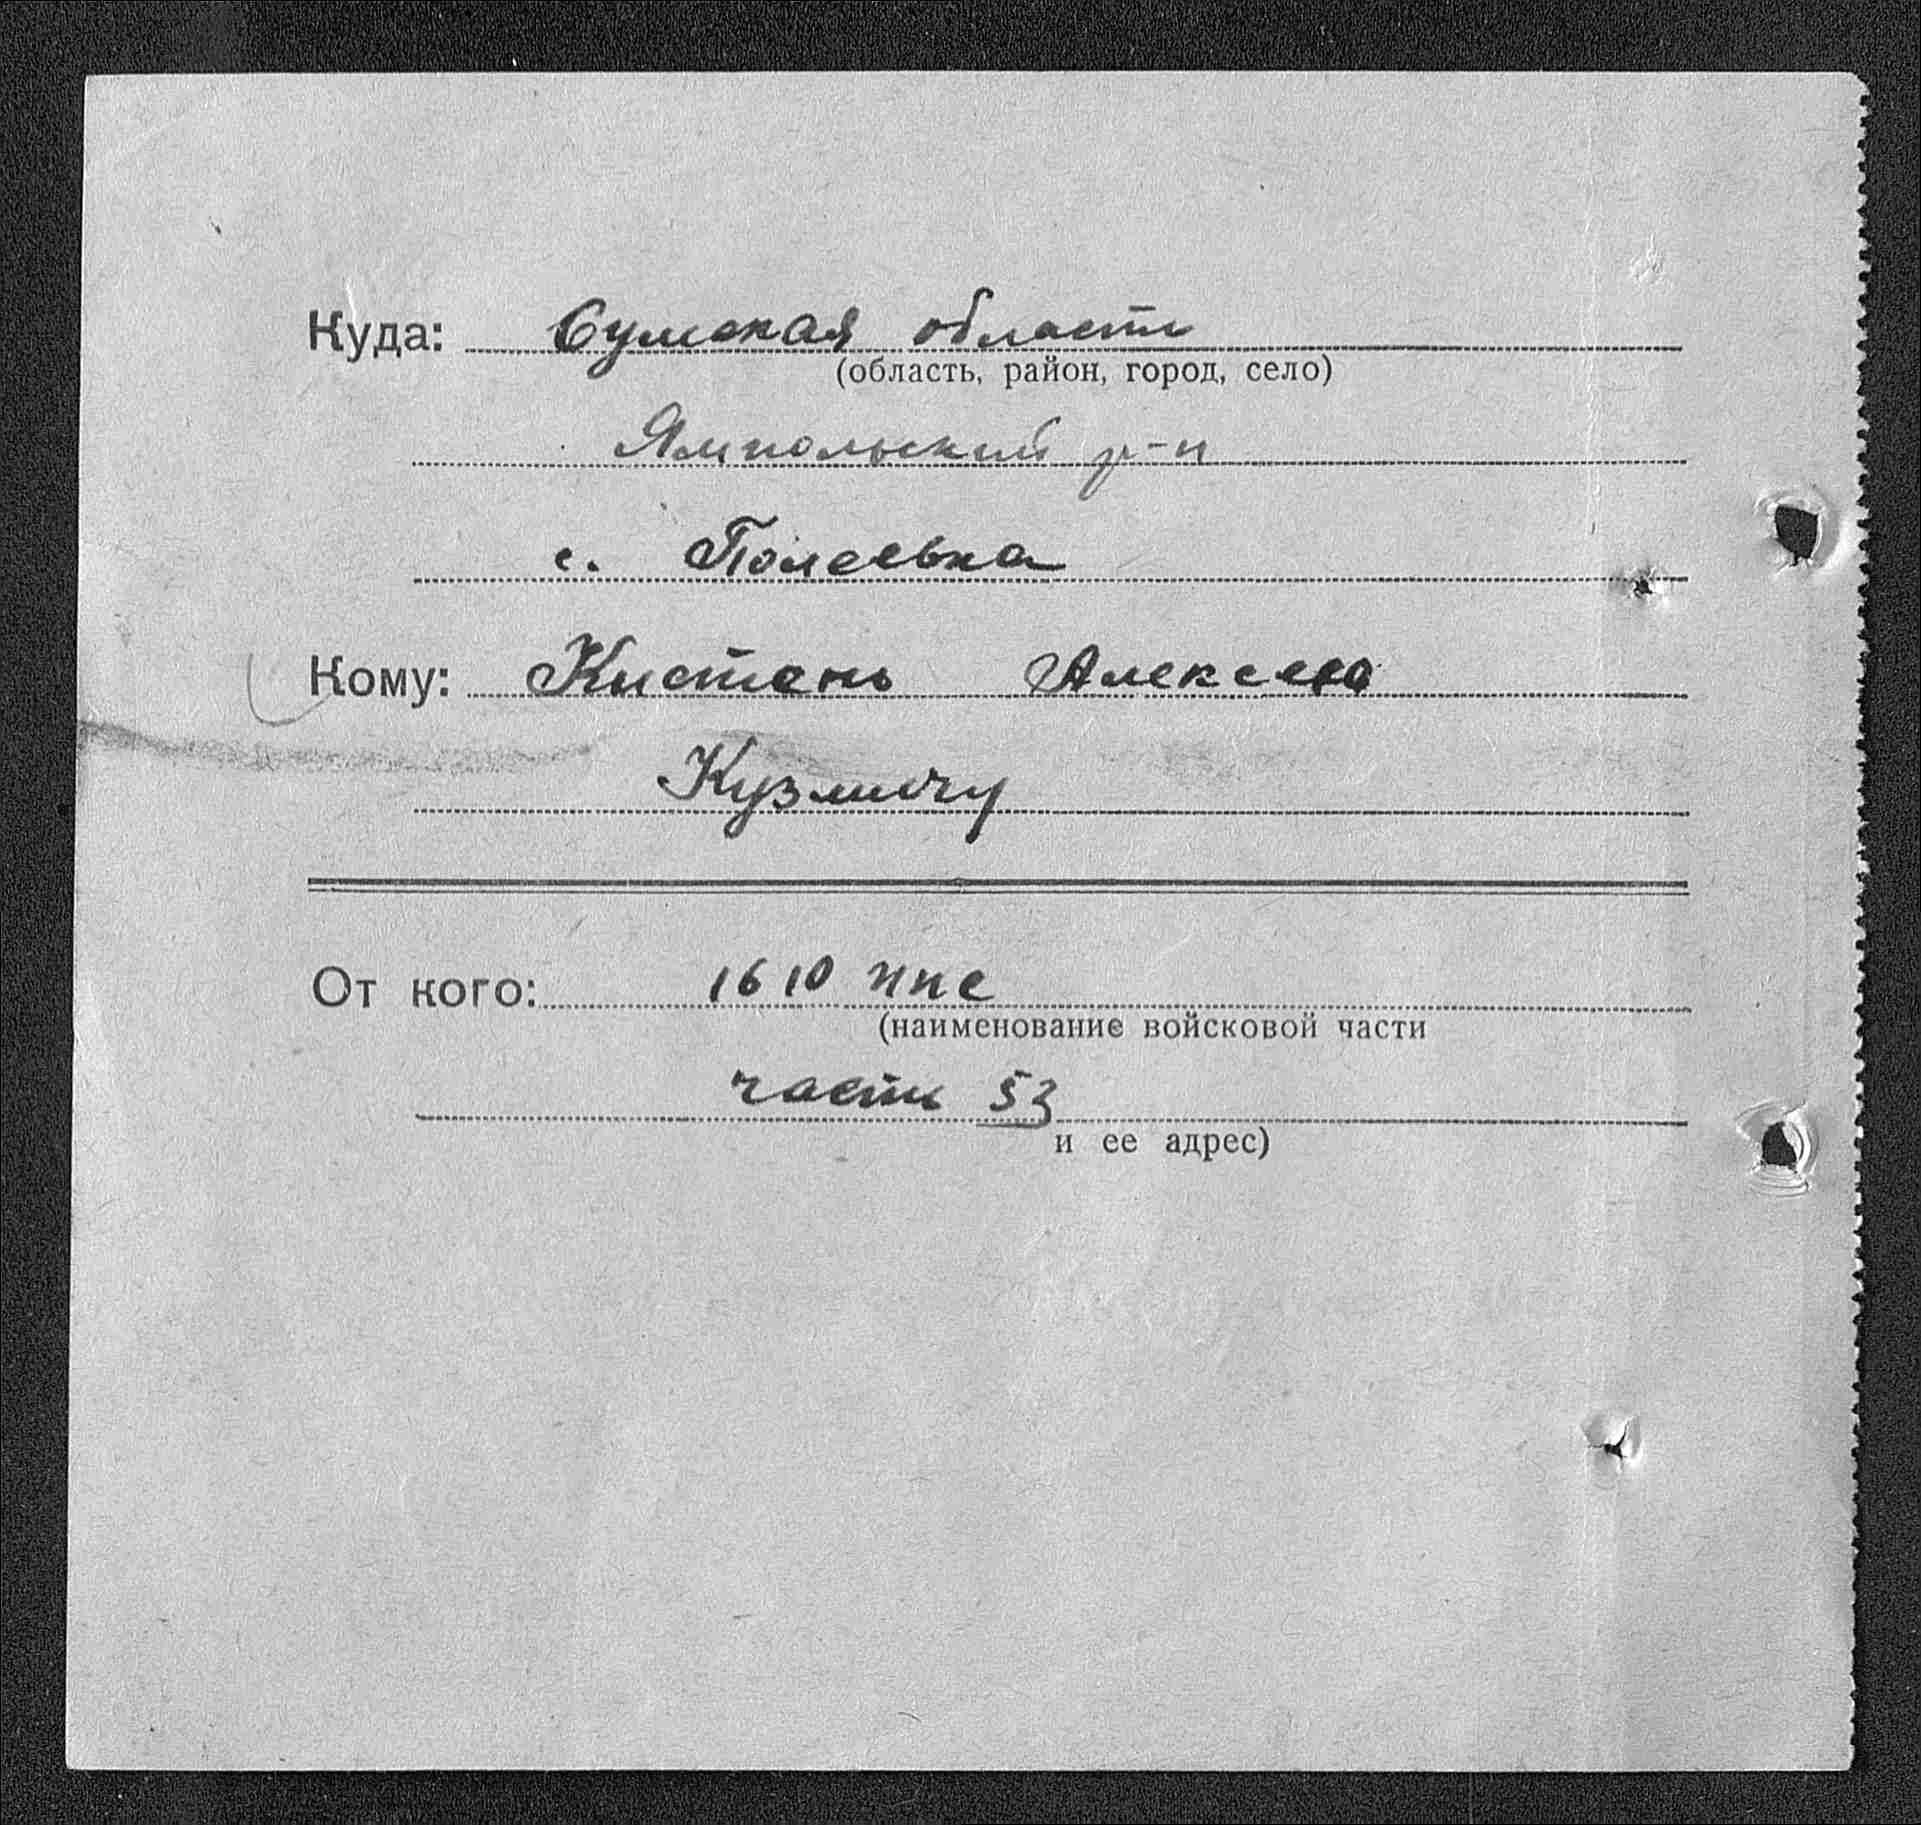 Куда: Сумская область
(область, район, город, село)
Ямпольский р-н
с.
Кому: Кистень Алексею
Кузмичу
От кого: 1610 ппс
(наименование войсковой части
часть 53
и ее адрес)